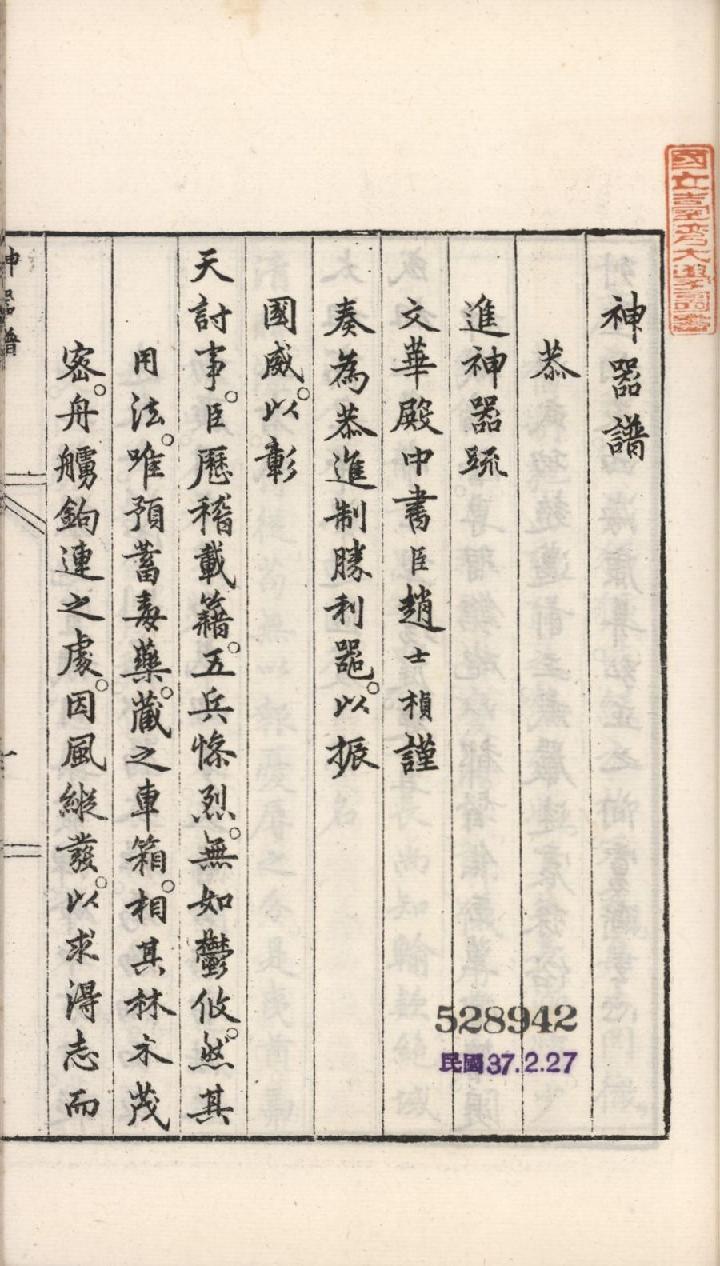 神器譜
恭
進神器疏
文華殿中書臣趙士楨謹
奏為恭進制勝利器。以振
國威。以彰
天討事。臣歷稽載籍。五兵慘烈。無如鬱攸。然其
用法。唯預蓄毒藥。藏之車箱。相其林木茂
密。舟艣鉤連之處。因風縱發。以求得志而
神器譜
528942
民國37.2.27